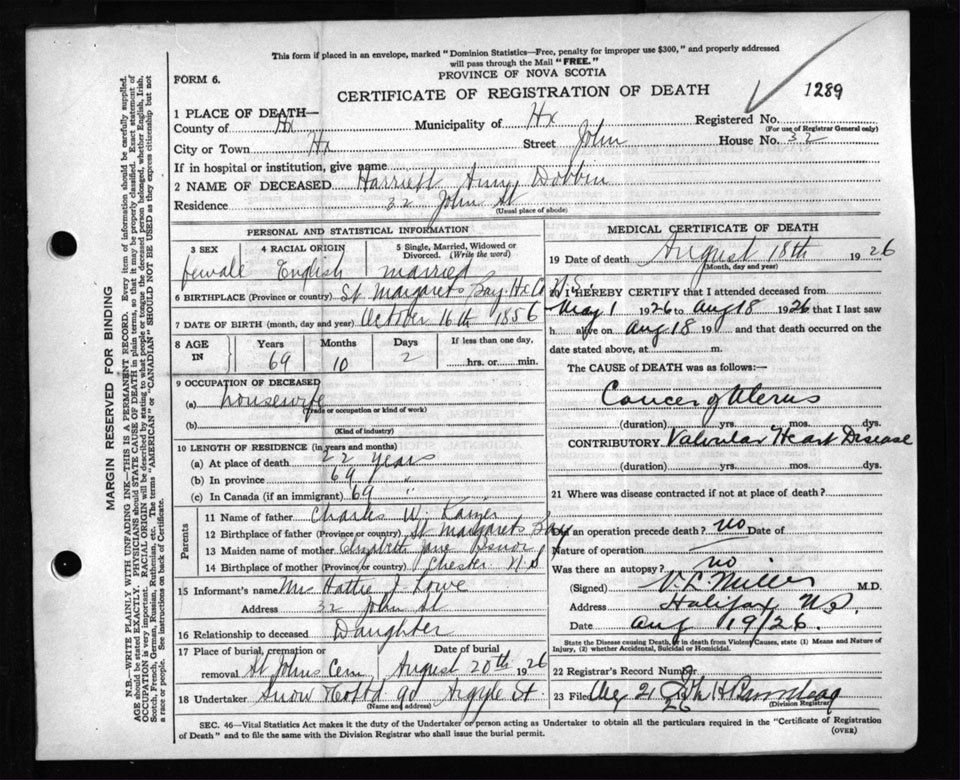 This form if placed in an envelope, marked "Dominion Statistics—Free, penalty for improper use $300," and properly addressed
will pass through the Mail "FREE."
FORM 6.
PROVINCE OF NOVA SCOTIA
CERTIFICATE OF REGISTRATION OF DEATH
1289
1 PLACE OF DEATH—
County of Hx Municipality of Hx Registered No.
(For use of Registrar General only)
City or Town Hx Street John House No. 32
If in hospital or institution, give name
2 NAME OF DECEASED Harriett Amy Dobbin
Residence 32 John St
(Usual place of abode)
PERSONAL AND STATISTICAL INFORMATION
3 SEX 4 RACIAL ORIGIN 5 Single, Married, Widowed or Divorced. (Write the word)
female English married
6 BIRTHPLACE (Province or country) St Margarets Bay Hx Co N.S.
7 DATE OF BIRTH (month, day and year) October 16th 1856
8 AGE IN Years Months Days If less than one day,
69 10 2 hrs. or min.
9 OCCUPATION OF DECEASED
(a) housewife
(Trade or occupation or kind of work)
(b)
(Kind of industry)
10 LENGTH OF RESIDENCE (in years and months)
(a) At place of death 22 years
(b) In province 69 "
(c) In Canada (if an immigrant) 69 "
Parents
11 Name of father Charles W. Kaizer
12 Birthplace of father (Province or country) St Margarets Bay
13 Maiden name of mother Elizabeth Jane
14 Birthplace of mother (Province or country) Chester N.S
15 Informant's name Mrs Hattie J Lowe
Address 32 John St
16 Relationship to deceased Daughter
17 Place of burial, cremation or removal Date of burial
St Johns Cem August 20th 1926
18 Undertaker Snow & Co Ltd 90 Argyle St.
(Name and address)
MEDICAL CERTIFICATE OF DEATH
19 Date of death August 18th 1926
(Month, day and year)
20 I HEREBY CERTIFY that I attended deceased from
May 1 1926 to Aug 18 1926 that I last saw
h alive on Aug 18 19 and that death occurred on the
date stated above, at m.
The CAUSE of DEATH was as follows:—
Cancer of Uterus
(duration) yrs. mos. dys.
CONTRIBUTORY Valvular Heart Disease
(duration) yrs. mos. dys.
21 Where was disease contracted if not at place of death?
Did an operation precede death? no Date of
Nature of operation
Was there an autopsy? no
(Signed) V. L. Miller M.D.
Address Halifax N.S.
Date Aug 19/26.
State the Disease causing Death, or in death from Violent Causes, state (1) Means and Nature of
Injury, (2) whether Accidental, Suicidal or Homicidal.
22 Registrar's Record Number
23 Filed Aug 21 1926
(Division Registrar)
SEC. 46—Vital Statistics Act makes it the duty of the Undertaker or person acting as Undertaker to obtain all the particulars required in the "Certificate of Registration
of Death" and to file the same with the Division Registrar who shall issue the burial permit.
(OVER)
MARGIN RESERVED FOR BINDING
N.B.—WRITE PLAINLY WITH UNFADING INK—THIS IS A PERMANENT RECORD. Every item of information should be carefully supplied.
AGE should be stated EXACTLY. PHYSICIANS should STATE CAUSE OF DEATH in plain terms, so that it may be properly classified. Exact statement of
OCCUPATION is very important. RACIAL ORIGIN will be described by stating to what people or tongue the deceased person belonged, whether English, Irish,
Scotch, French, German, Russian, Ruthenian, etc. The terms "AMERICAN" or "CANADIAN" SHOULD NOT BE USED as they express citizenship but not
a race or people. See instructions on back of Certificate.